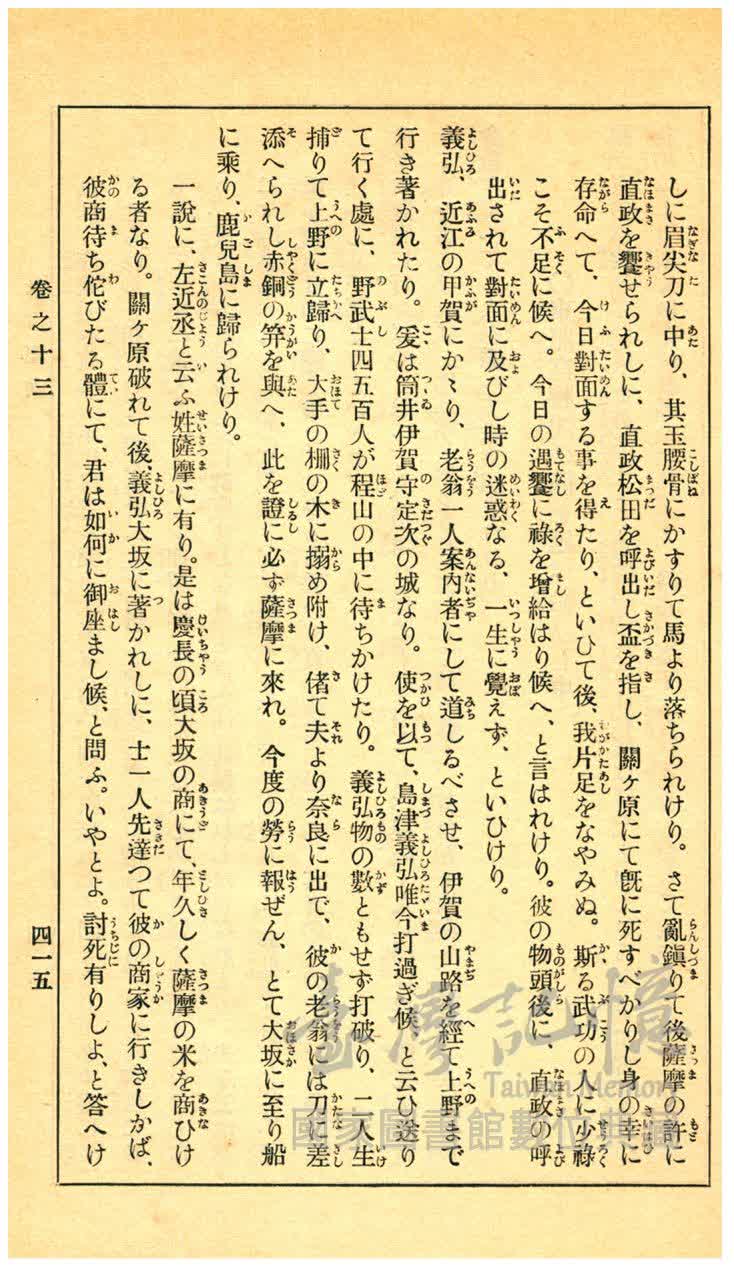 しに眉尖刀に中り、其玉腰骨にかすりて馬より落ちられけり。さて亂鎭りて後薩摩の許に
直政を饗せられしに、直政松田を呼出し盃を指し、關ヶ原にて既に死すべかりし身の幸に
存命へて、今日對面する事を得たり、といひて後、我片足をなやみぬ。斯る武功の人に少祿
こそ不足に候へ。今日の遇饗に祿を增給はり候へ、と言はれけり。彼の物頭後に、直政の呼
出されて對面に及びし時の迷惑なる、一生に覺えず、といひけり。
義弘、近江の甲賀にかゝり、老翁一人案內者にして道しるべさせ、伊賀の山路を經て上野まで
行き著かれたり。爰は筒井伊賀守定次の城なり。使を以て、島津義弘唯今打過ぎ候、と云ひ送り
て行く處に、野武士四五百人が程山の中に待ちかけたり。義弘物の數ともせず打破り、二人生
捕りて上野に立歸り、大手の柵の木に搦め附け、偖て夫より奈良に出で、彼の老翁には刀に差
添へられし赤銅の笄を與へ、此を證に必ず薩摩に來れ。今度の勞に報ぜん、とて大坂に至り船
に乘り、鹿兒島に歸られけり。
一說に、左近丞と云ふ姓薩摩に有り。是は慶長の頃大坂の商にて、年久しく薩摩の米を商ひけ
る者なり。關ヶ原破れて後、義弘大坂に著かれしに、士一人先達つて彼の商家に行きしかば、
彼商待ち佗びたる體にて、君は如何に御座まし候、と問ふ。いやとよ。討死有りしよ、と答へけ
卷之十三
四一五
臺灣記憶
Taiwan Memory
國家圖書館數位典藏